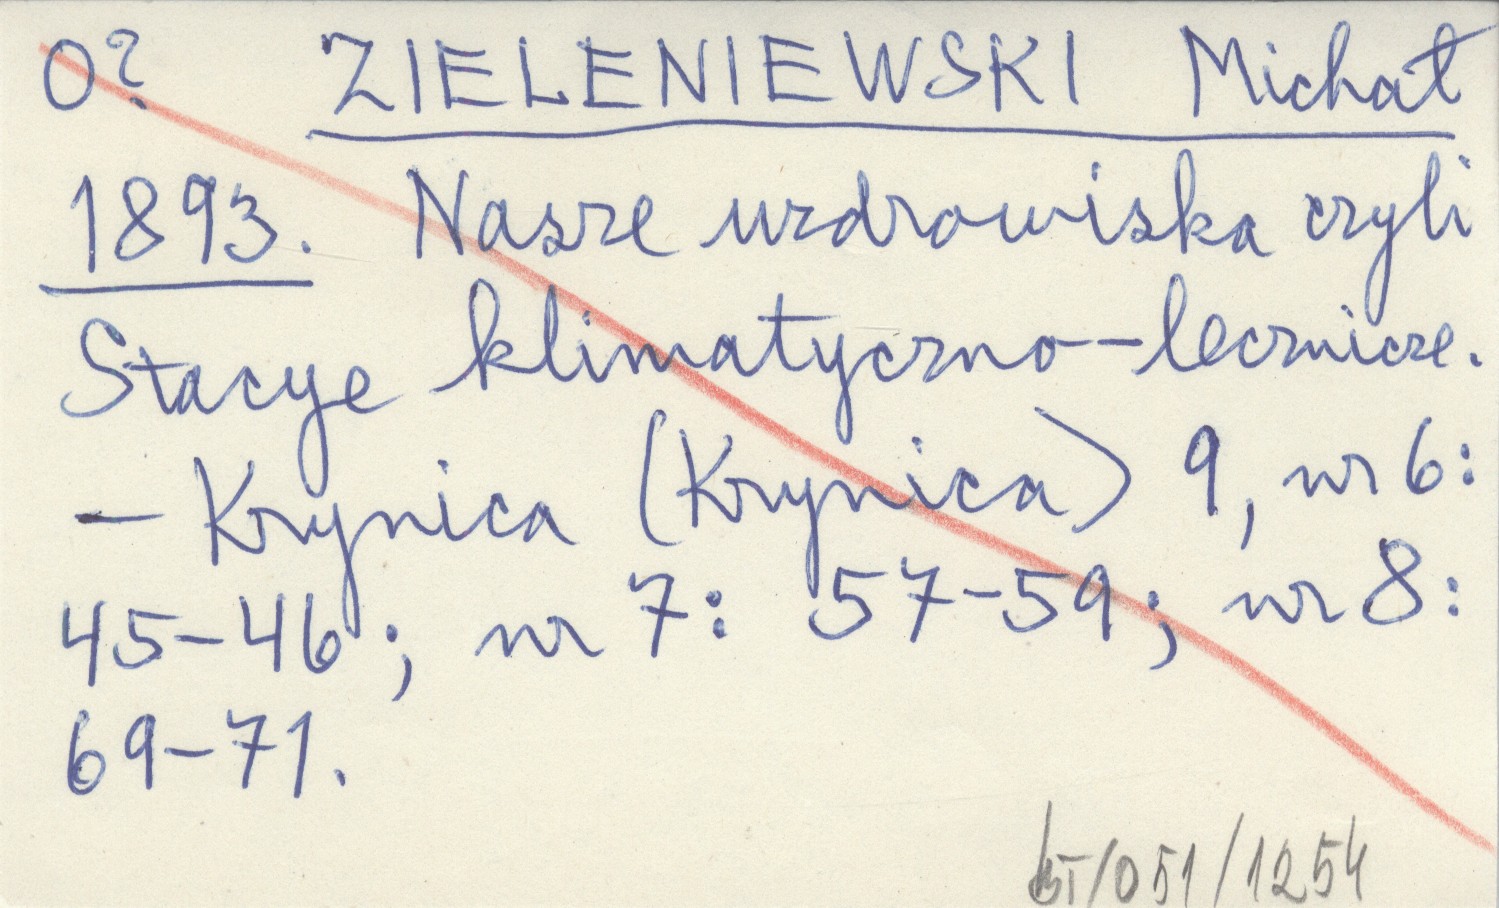 O? ZIELENIEWSKI Michał
1893. Nasze uzdrowiska czyli
Stacye klimatyczno-lecznicze.
- Krynica (Krynica) 9, nr 6:
45-46; nr 7: 57-59; nr 8:
69-71.
/051/1254